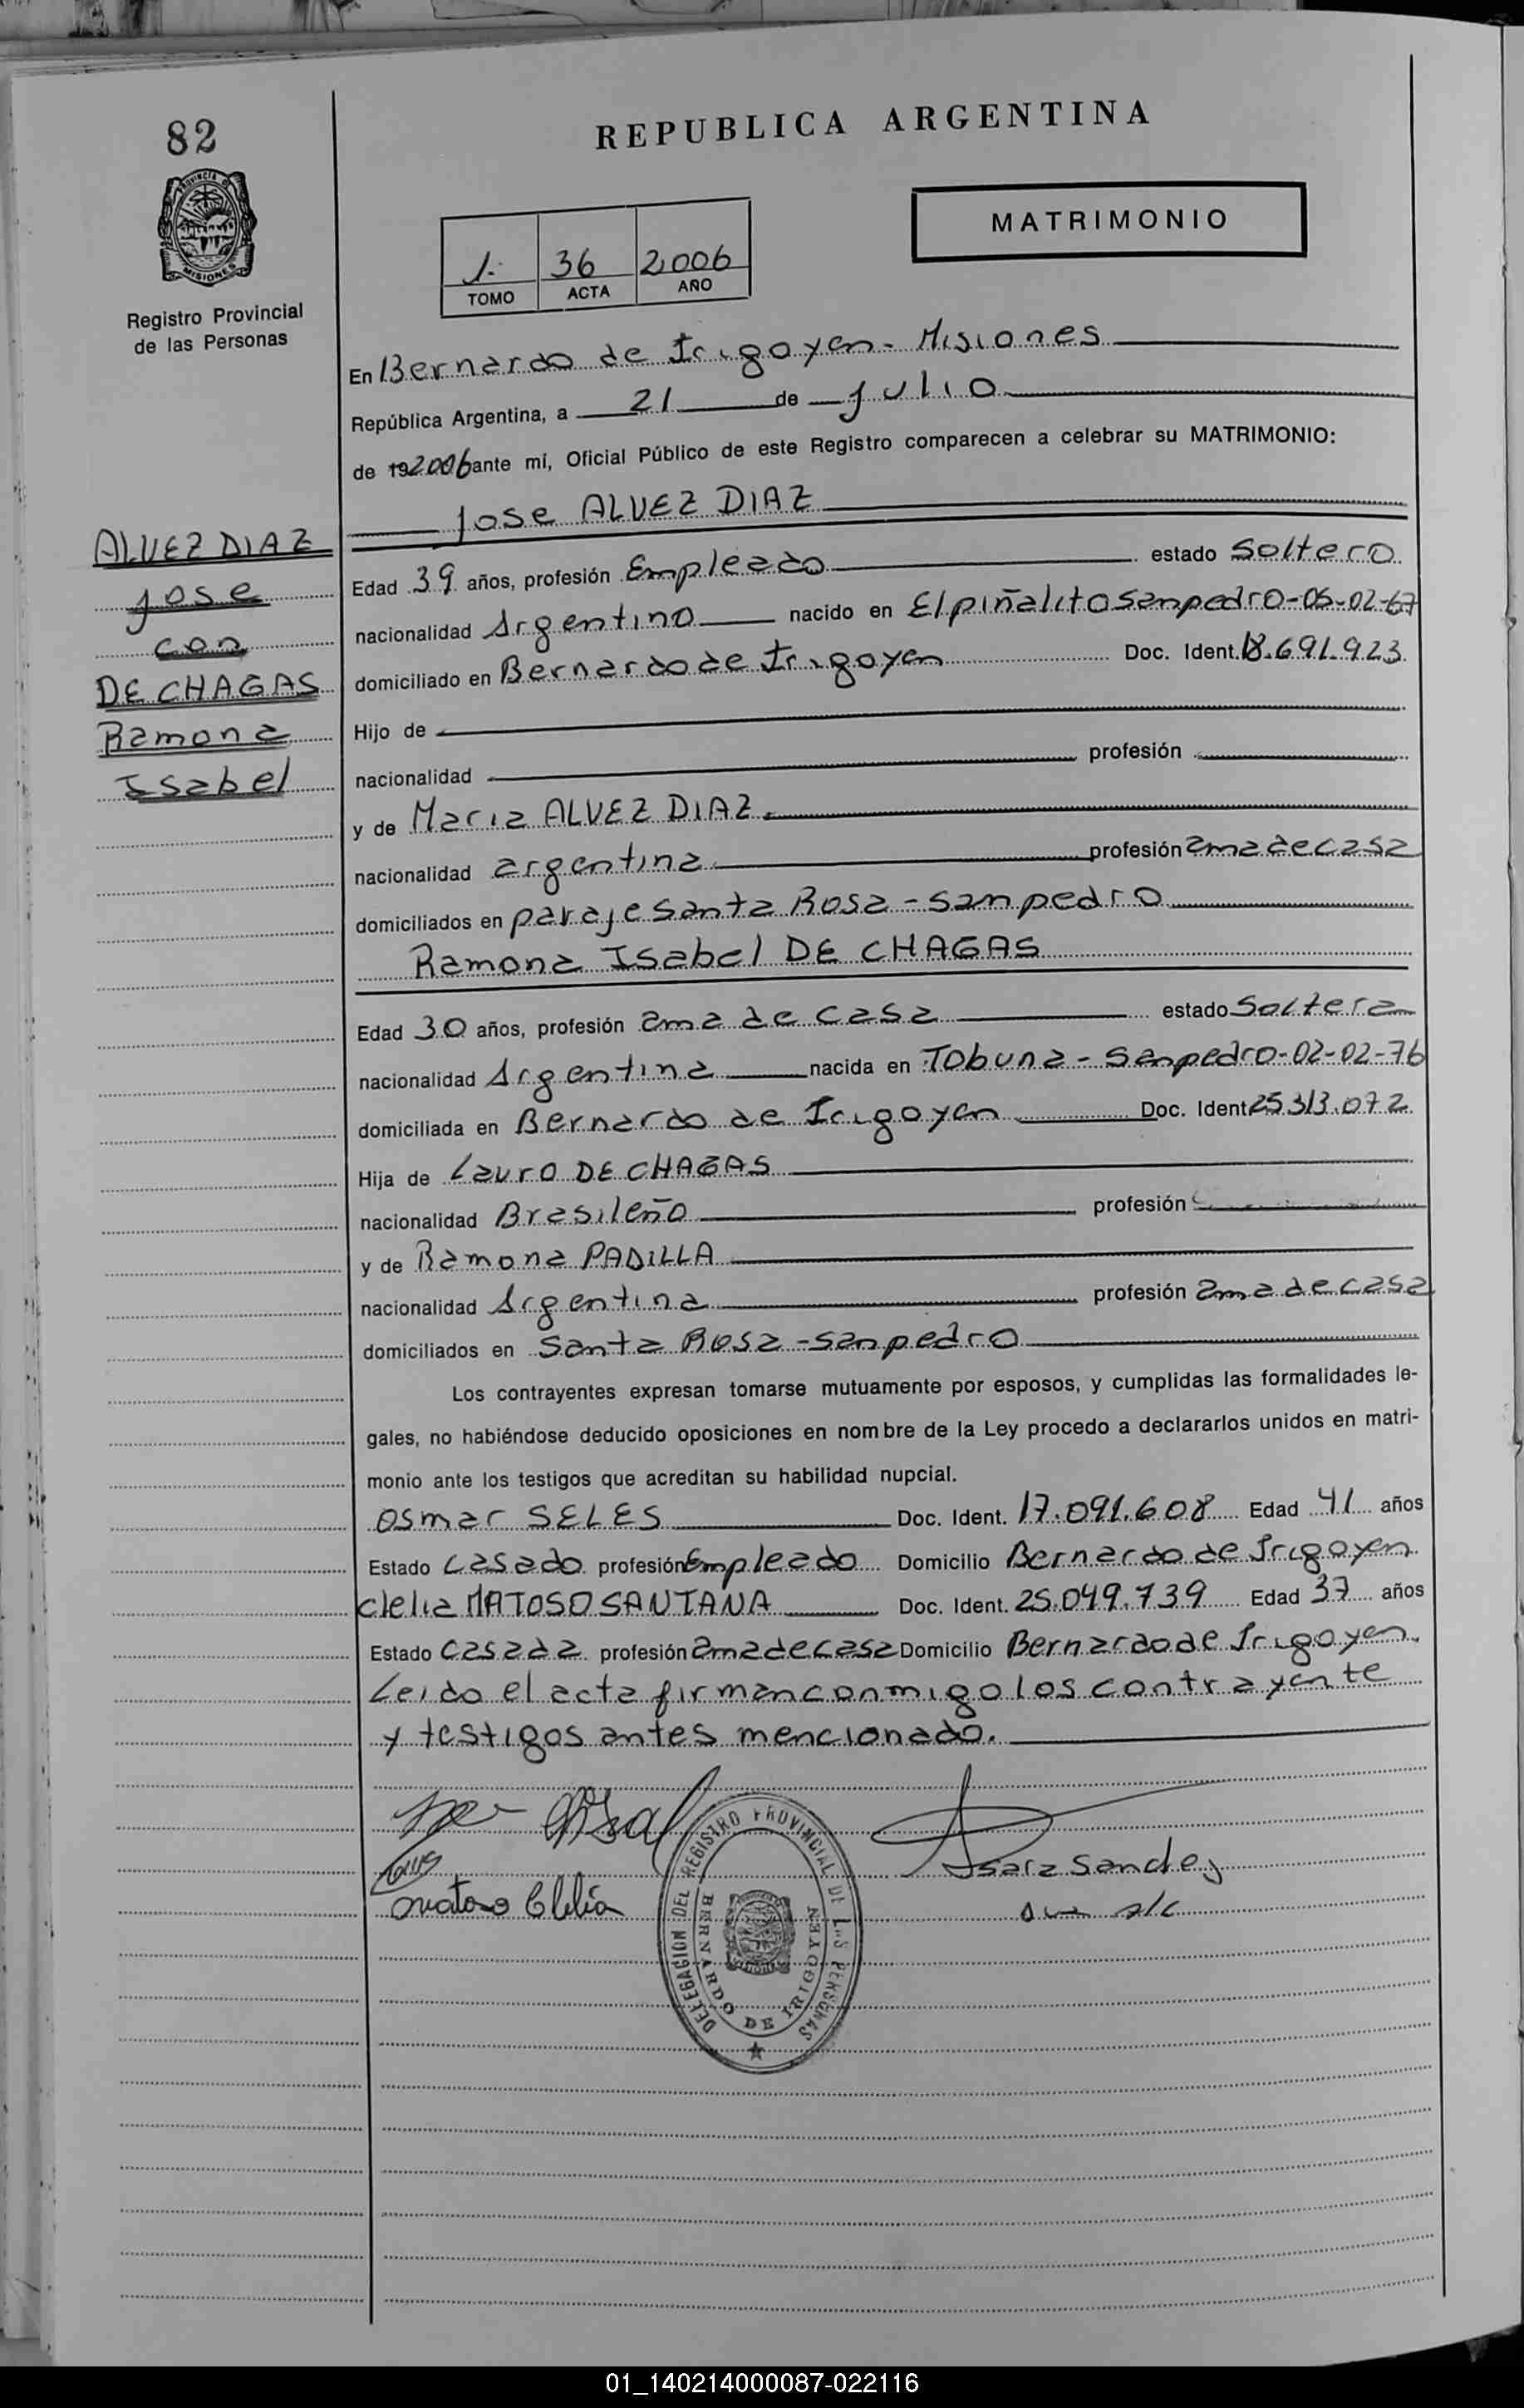 82
REPUBLICA ARGENTINA
PROVINCIA DE
MISIONES
Registro Provincial
de las Personas
MATRIMONIO
1.- 36 2006
TOMO ACTA AÑO
En Bernardo de Irigoyen - Misiones
República Argentina, a 21 de julio
de 192006 ante mí, Oficial Público de este Registro comparecen a celebrar su MATRIMONIO:
Jose ALVEZ DIAZ
ALVEZ DIAZ
Jose
con
DE CHAGAS
Ramona
Isabel
Edad 39 años, profesión Empleado estado Soltero
nacionalidad Argentino nacido en El piñalito san pedro-06-02-67
domiciliado en Bernardo de Irigoyen Doc. Ident. 18.691.923
Hijo de
nacionalidad profesión
y de Maria ALVEZ DIAZ.
nacionalidad argentina profesión ama de casa
domiciliados en paraje santa Rosa - san pedro
Ramona Isabel DE CHAGAS
Edad 30 años, profesión ama de casa estado Soltera
nacionalidad Argentina nacida en Tobuna - san pedro-02-02-76
domiciliada en Bernardo de Irigoyen Doc. Ident 25.313.072
Hija de Lauro DE CHAGAS
nacionalidad Brasileño profesión
y de Ramona PADILLA
nacionalidad Argentina profesión ama de casa
domiciliados en Santa Rosa - san pedro
Los contrayentes expresan tomarse mutuamente por esposos, y cumplidas las formalidades le-
gales, no habiéndose deducido oposiciones en nombre de la Ley procedo a declararlos unidos en matri-
monio ante los testigos que acreditan su habilidad nupcial.
Osmar SELES Doc. Ident. 17.091.608 Edad 41 años
Estado Casado profesión Empleado Domicilio Bernardo de Irigoyen
Clelia MATOSO SANTANA Doc. Ident. 25.049.739 Edad 37 años
Estado Casada profesión ama de casa Domicilio Bernardo de Irigoyen
Leido el acta firman conmigo los contrayente
y testigos antes mencionado.
Matoso Clelia
Sara Sandez
DELEGACION DEL REGISTRO PROVINCIAL DE LAS PERSONAS
BERNARDO DE IRIGOYEN
01_140214000087-022116